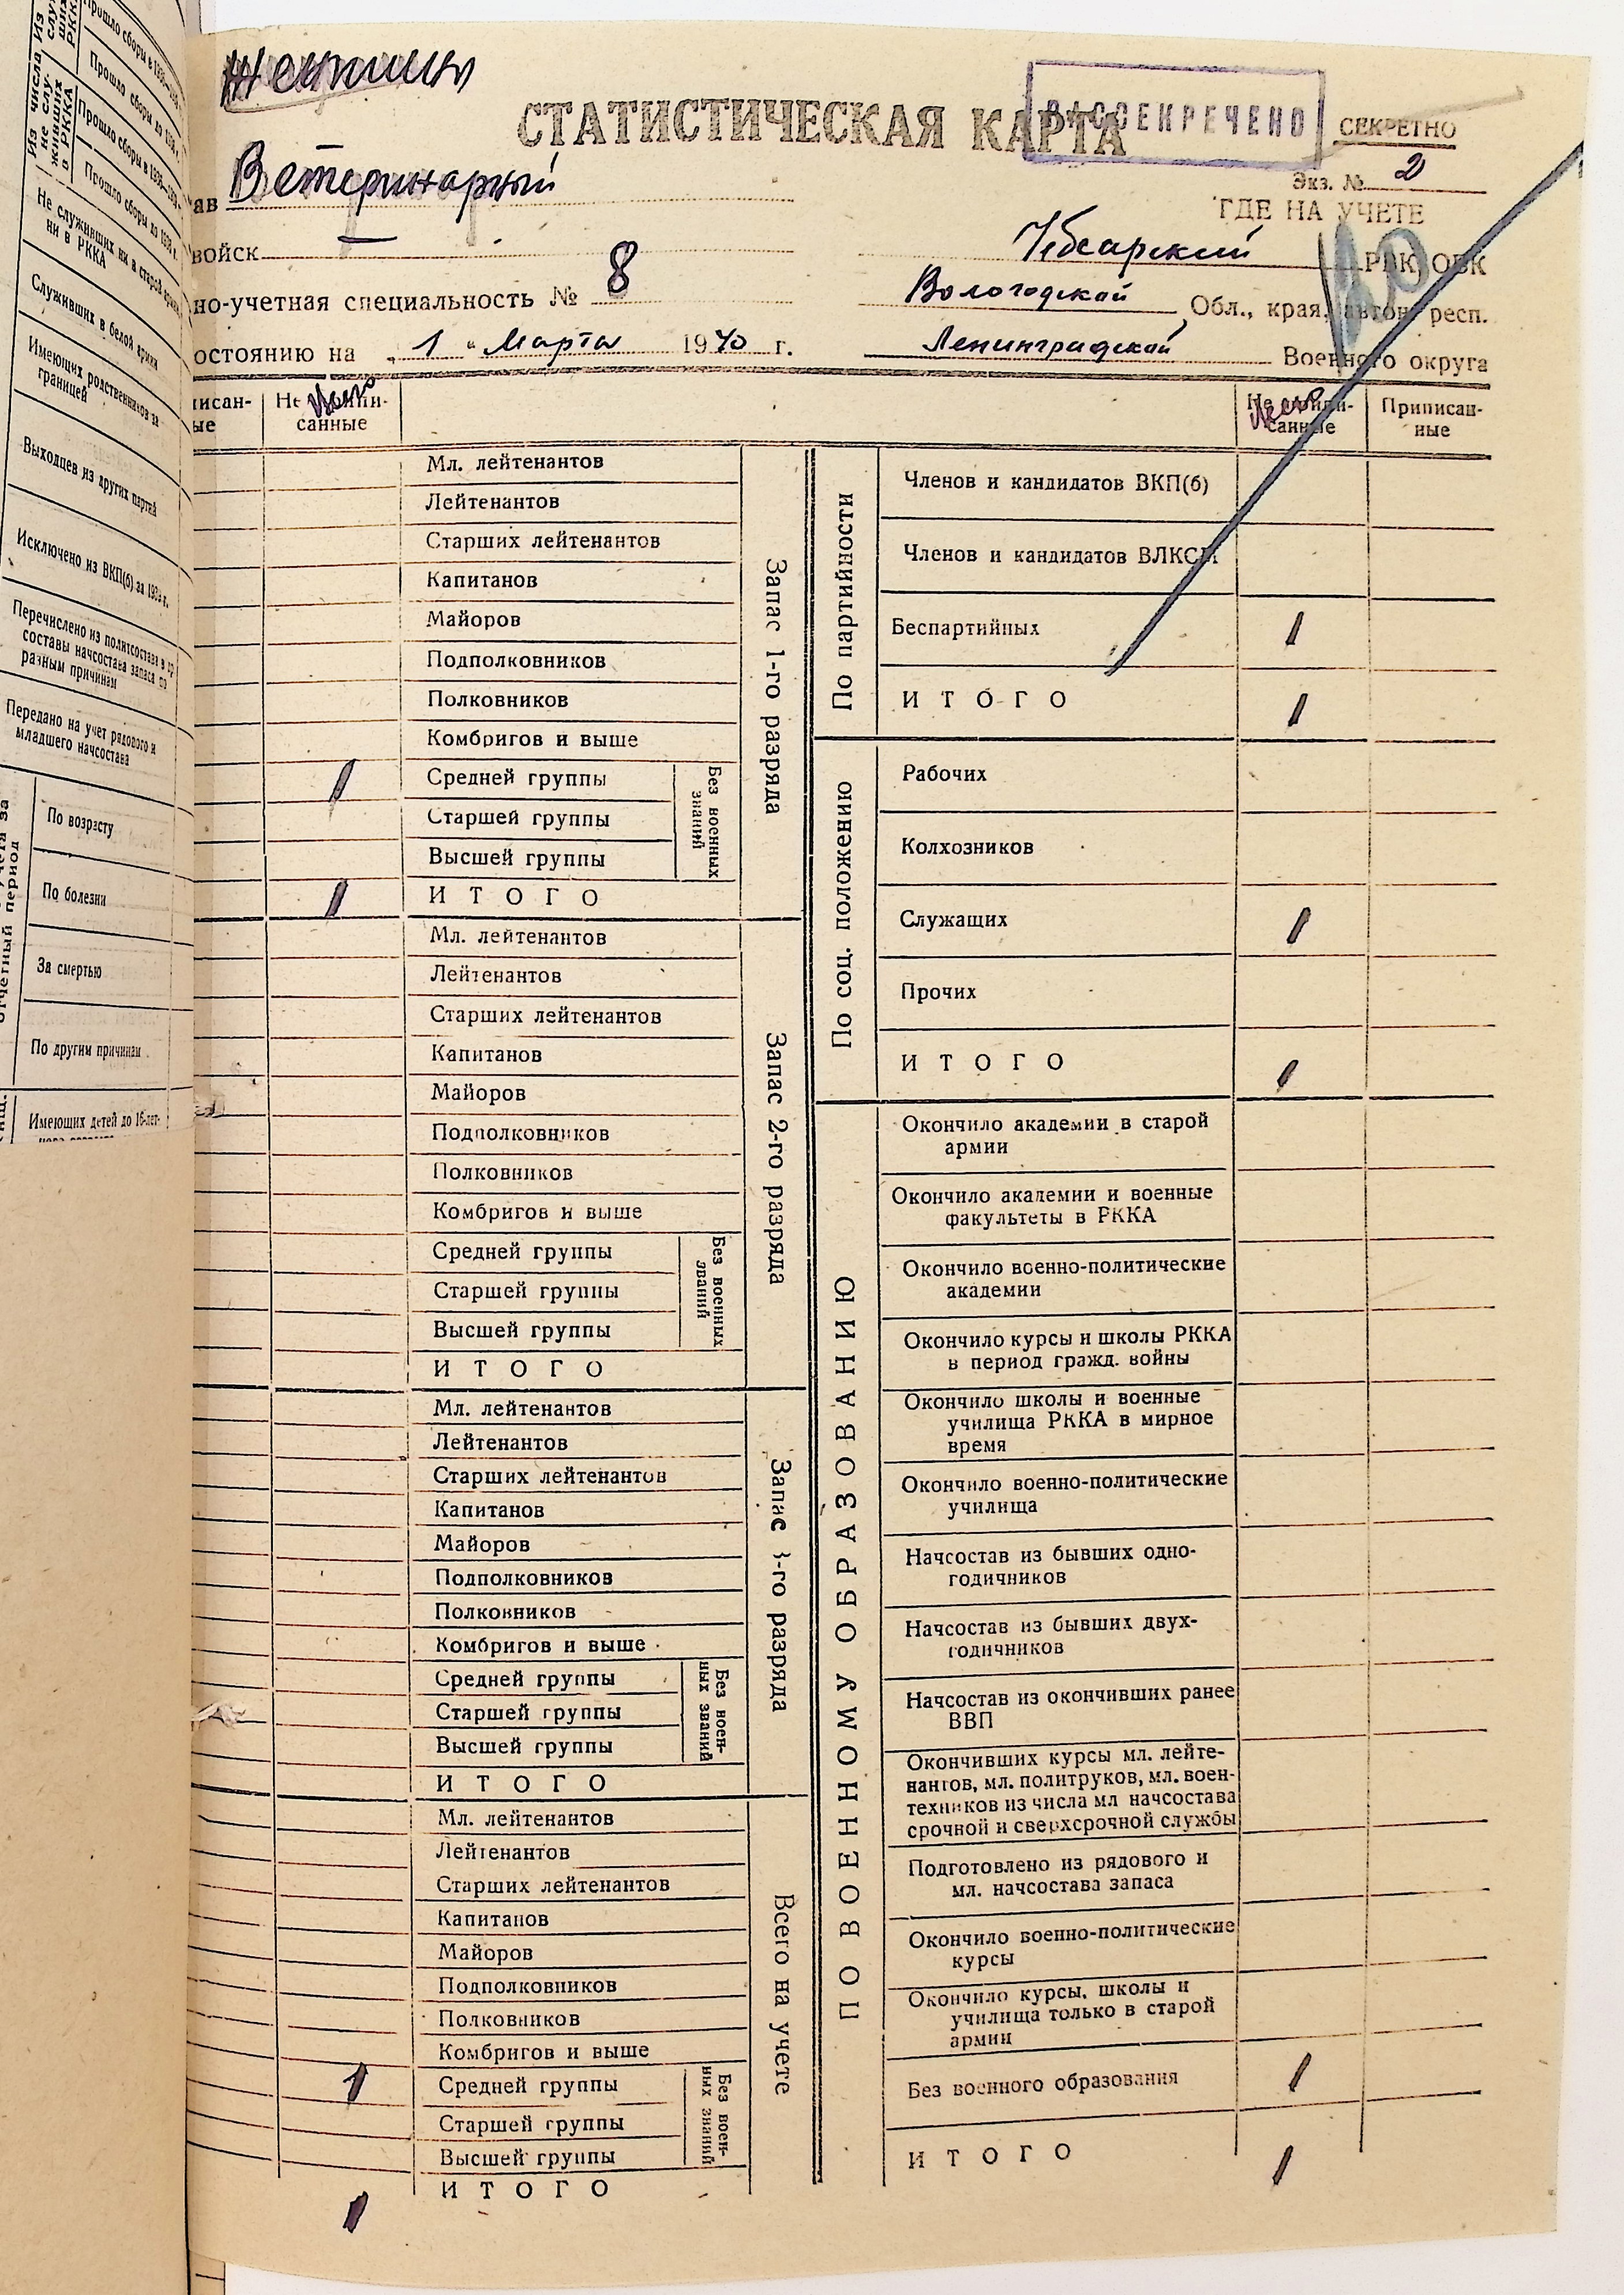 Женщины
СТАТИСТИЧЕСКАЯ КАРТА
РАССЕКРЕЧЕНО
СЕКРЕТНО
Экз. № 2
ав Ветеринарный
ГДЕ НА УЧЕТЕ
войск —
Чебсарский РВК, ОВК
но-учетная специальность № 8
Вологодской Обл., края, автон. респ.
остоянию на „1" Марта 1940 г.
Ленинградской Военного округа
20
писан-
ые
Не припи-
санные
Всего
Не припи-
санные
Всего
Приписан-
ные
Запас 1-го разряда
Мл. лейтенантов
Лейтенантов
Старших лейтенантов
Капитанов
Майоров
Подполковников
Полковников
Комбригов и выше
Без военных званий
Средней группы 1
Старшей группы
Высшей группы
ИТОГО 1
Запас 2-го разряда
Мл. лейтенантов
Лейтенантов
Старших лейтенантов
Капитанов
Майоров
Подполковников
Полковников
Комбригов и выше
Без военных званий
Средней группы
Старшей группы
Высшей группы
ИТОГО
Запас 3-го разряда
Мл. лейтенантов
Лейтенантов
Старших лейтенантов
Капитанов
Майоров
Подполковников
Полковников
Комбригов и выше
Без воен-
ных званий
Средней группы
Старшей группы
Высшей группы
ИТОГО
Всего на учете
Мл. лейтенантов
Лейтенантов
Старших лейтенантов
Капитанов
Майоров
Подполковников
Полковников
Комбригов и выше
Без воен-
ных званий
Средней группы 1
Старшей группы
Высшей группы
ИТОГО 1
По партийности
Членов и кандидатов ВКП(б)
Членов и кандидатов ВЛКСМ
Беспартийных 1
ИТОГО 1
По соц. положению
Рабочих
Колхозников
Служащих 1
Прочих
ИТОГО 1
ПО ВОЕННОМУ ОБРАЗОВАНИЮ
Окончило академии в старой
армии
Окончило академии и военные
факультеты в РККА
Окончило военно-политические
академии
Окончило курсы и школы РККА
в период гражд. войны
Окончило школы и военные
училища РККА в мирное
время
Окончило военно-политические
училища
Начсостав из бывших одно-
годичников
Начсостав из бывших двух-
годичников
Начсостав из окончивших ранее
ВВП
Окончивших курсы мл. лейте-
нантов, мл. политруков, мл. воен-
техников из числа мл начсостава
срочной и сверхсрочной службы
Подготовлено из рядового и
мл. начсостава запаса
Окончило военно-политические
курсы
Окончило курсы, школы и
училища только в старой
армии
Без военного образования 1
ИТОГО 1
Из числа
не слу-
живших
в РККА
Прошло сборы в 193
Прошло сборы до 193
Прошло сборы в 193
Прошло сборы до 193
Не служивших ни в старой армии,
ни в РККА
Служивших в белой армии
Имеющих родственников за
границей
Выходцев из других партий
Исключено из ВКП(б) за 1939 г.
Перечислено из политсостава в др
составы начсостава запаса по
разным причинам
Передано на учет рядового и
младшего начсостава
учета за
отчетный период
По возрасту
По болезни
За смертью
По другим причинам
Имеющих детей до 16-лет-